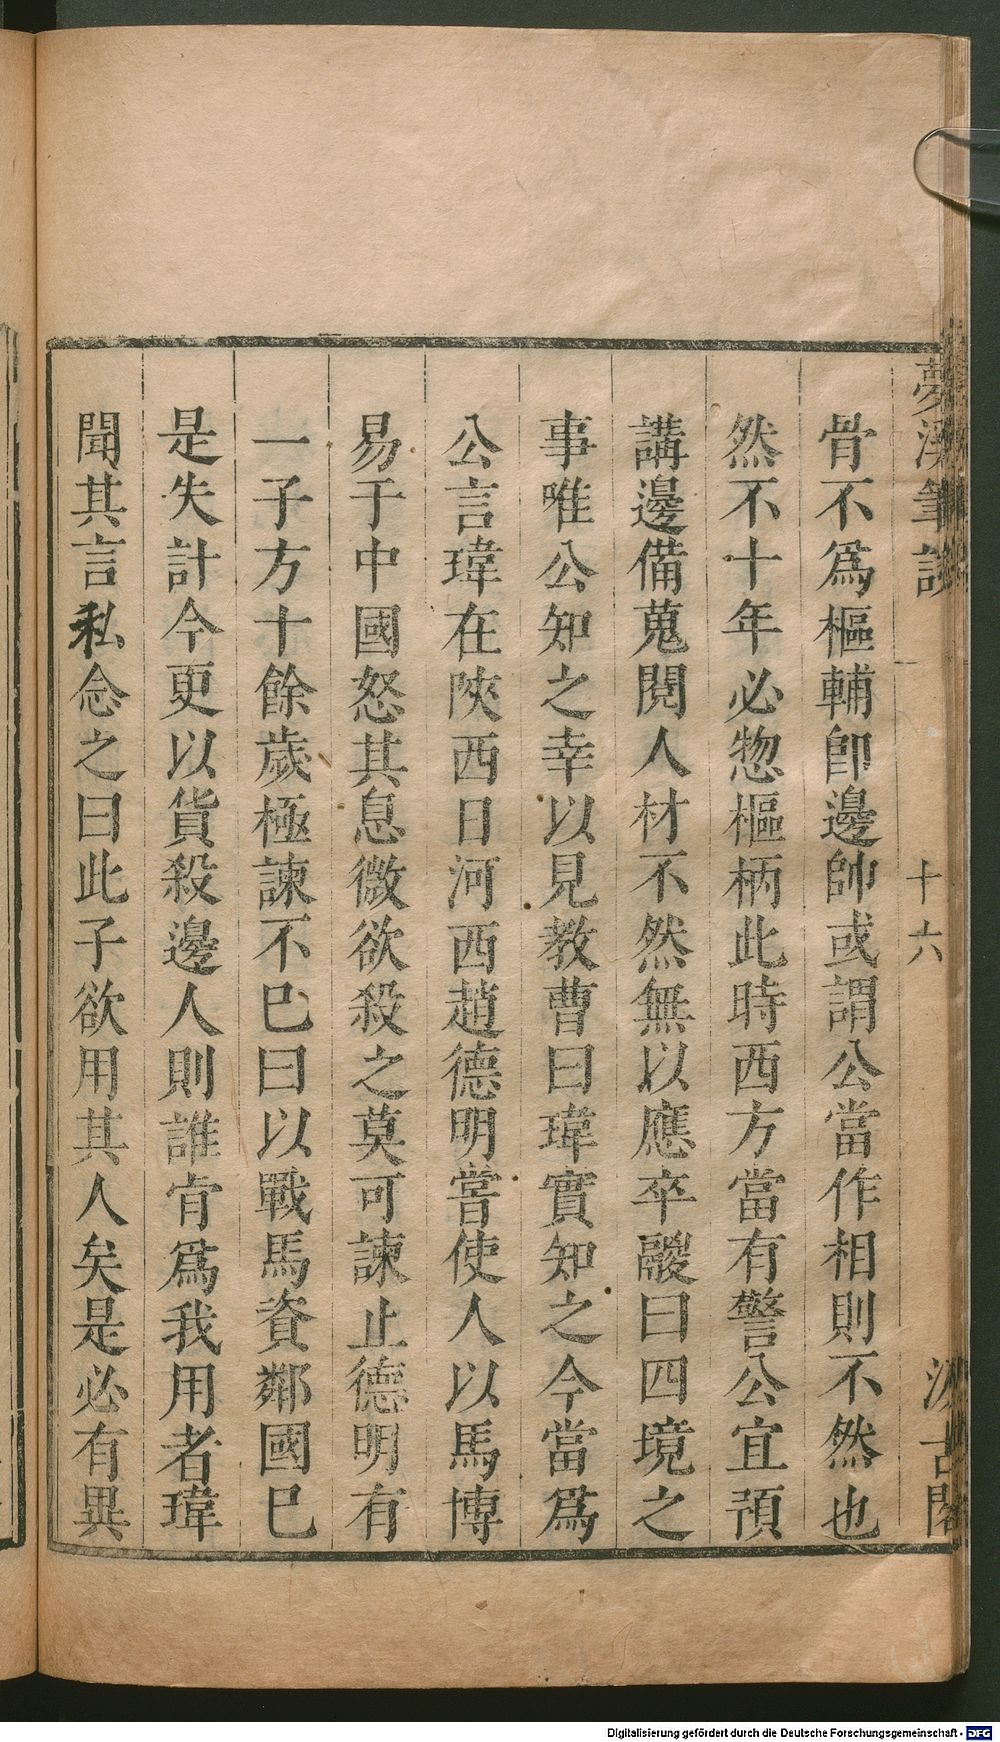 夢溪筆談
十六
汲古閣
骨不爲樞輔卽邊帥或謂公當作相則不然也
然不十年必惣樞柄此時西方當有警公宜預
講邊備蒐閱人材不然無以應卒鬷曰四境之
事唯公知之幸以見教曹曰瑋實知之今當爲
公言瑋在陝西日河西趙德明嘗使人以馬博
易于中國怒其息微欲殺之莫可諫止德明有
一子方十餘歲極諫不巳曰以戰馬資鄰國巳
是失計今更以貨殺邊人則誰肯爲我用者瑋
聞其言私念之曰此子欲用其人矣是必有異
Digitalisierung gefördert durch die Deutsche Forschungsgemeinschaft - DFG